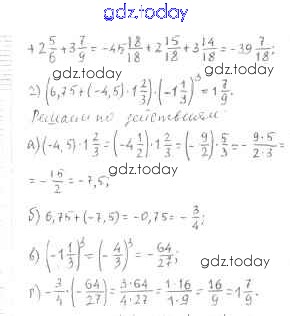 gdz.today
+2 5/6 + 3 7/9 = -45 18/18 + 2 15/18 + 3 14/18 = -39 7/18;
gdz.today
2) (6,75 + (-4,5) · 1 2/3) · (-1 1/3)³ = 1 7/9.
gdz.today
Решаем по действиям:
а) (-4,5) · 1 2/3 = (-4 1/2) · 1 2/3 = (-9/2) · 5/3 = - 9·5/2·3 =
= - 15/2 = -7,5; gdz.today
б) 6,75 + (-7,5) = -0,75 = - 3/4;
в) (-1 1/3)³ = (-4/3)³ = - 64/27; gdz.today
г) - 3/4 · (- 64/27) = 3·64/4·27 = 1·16/1·9 = 16/9 = 1 7/9.
gdz.today